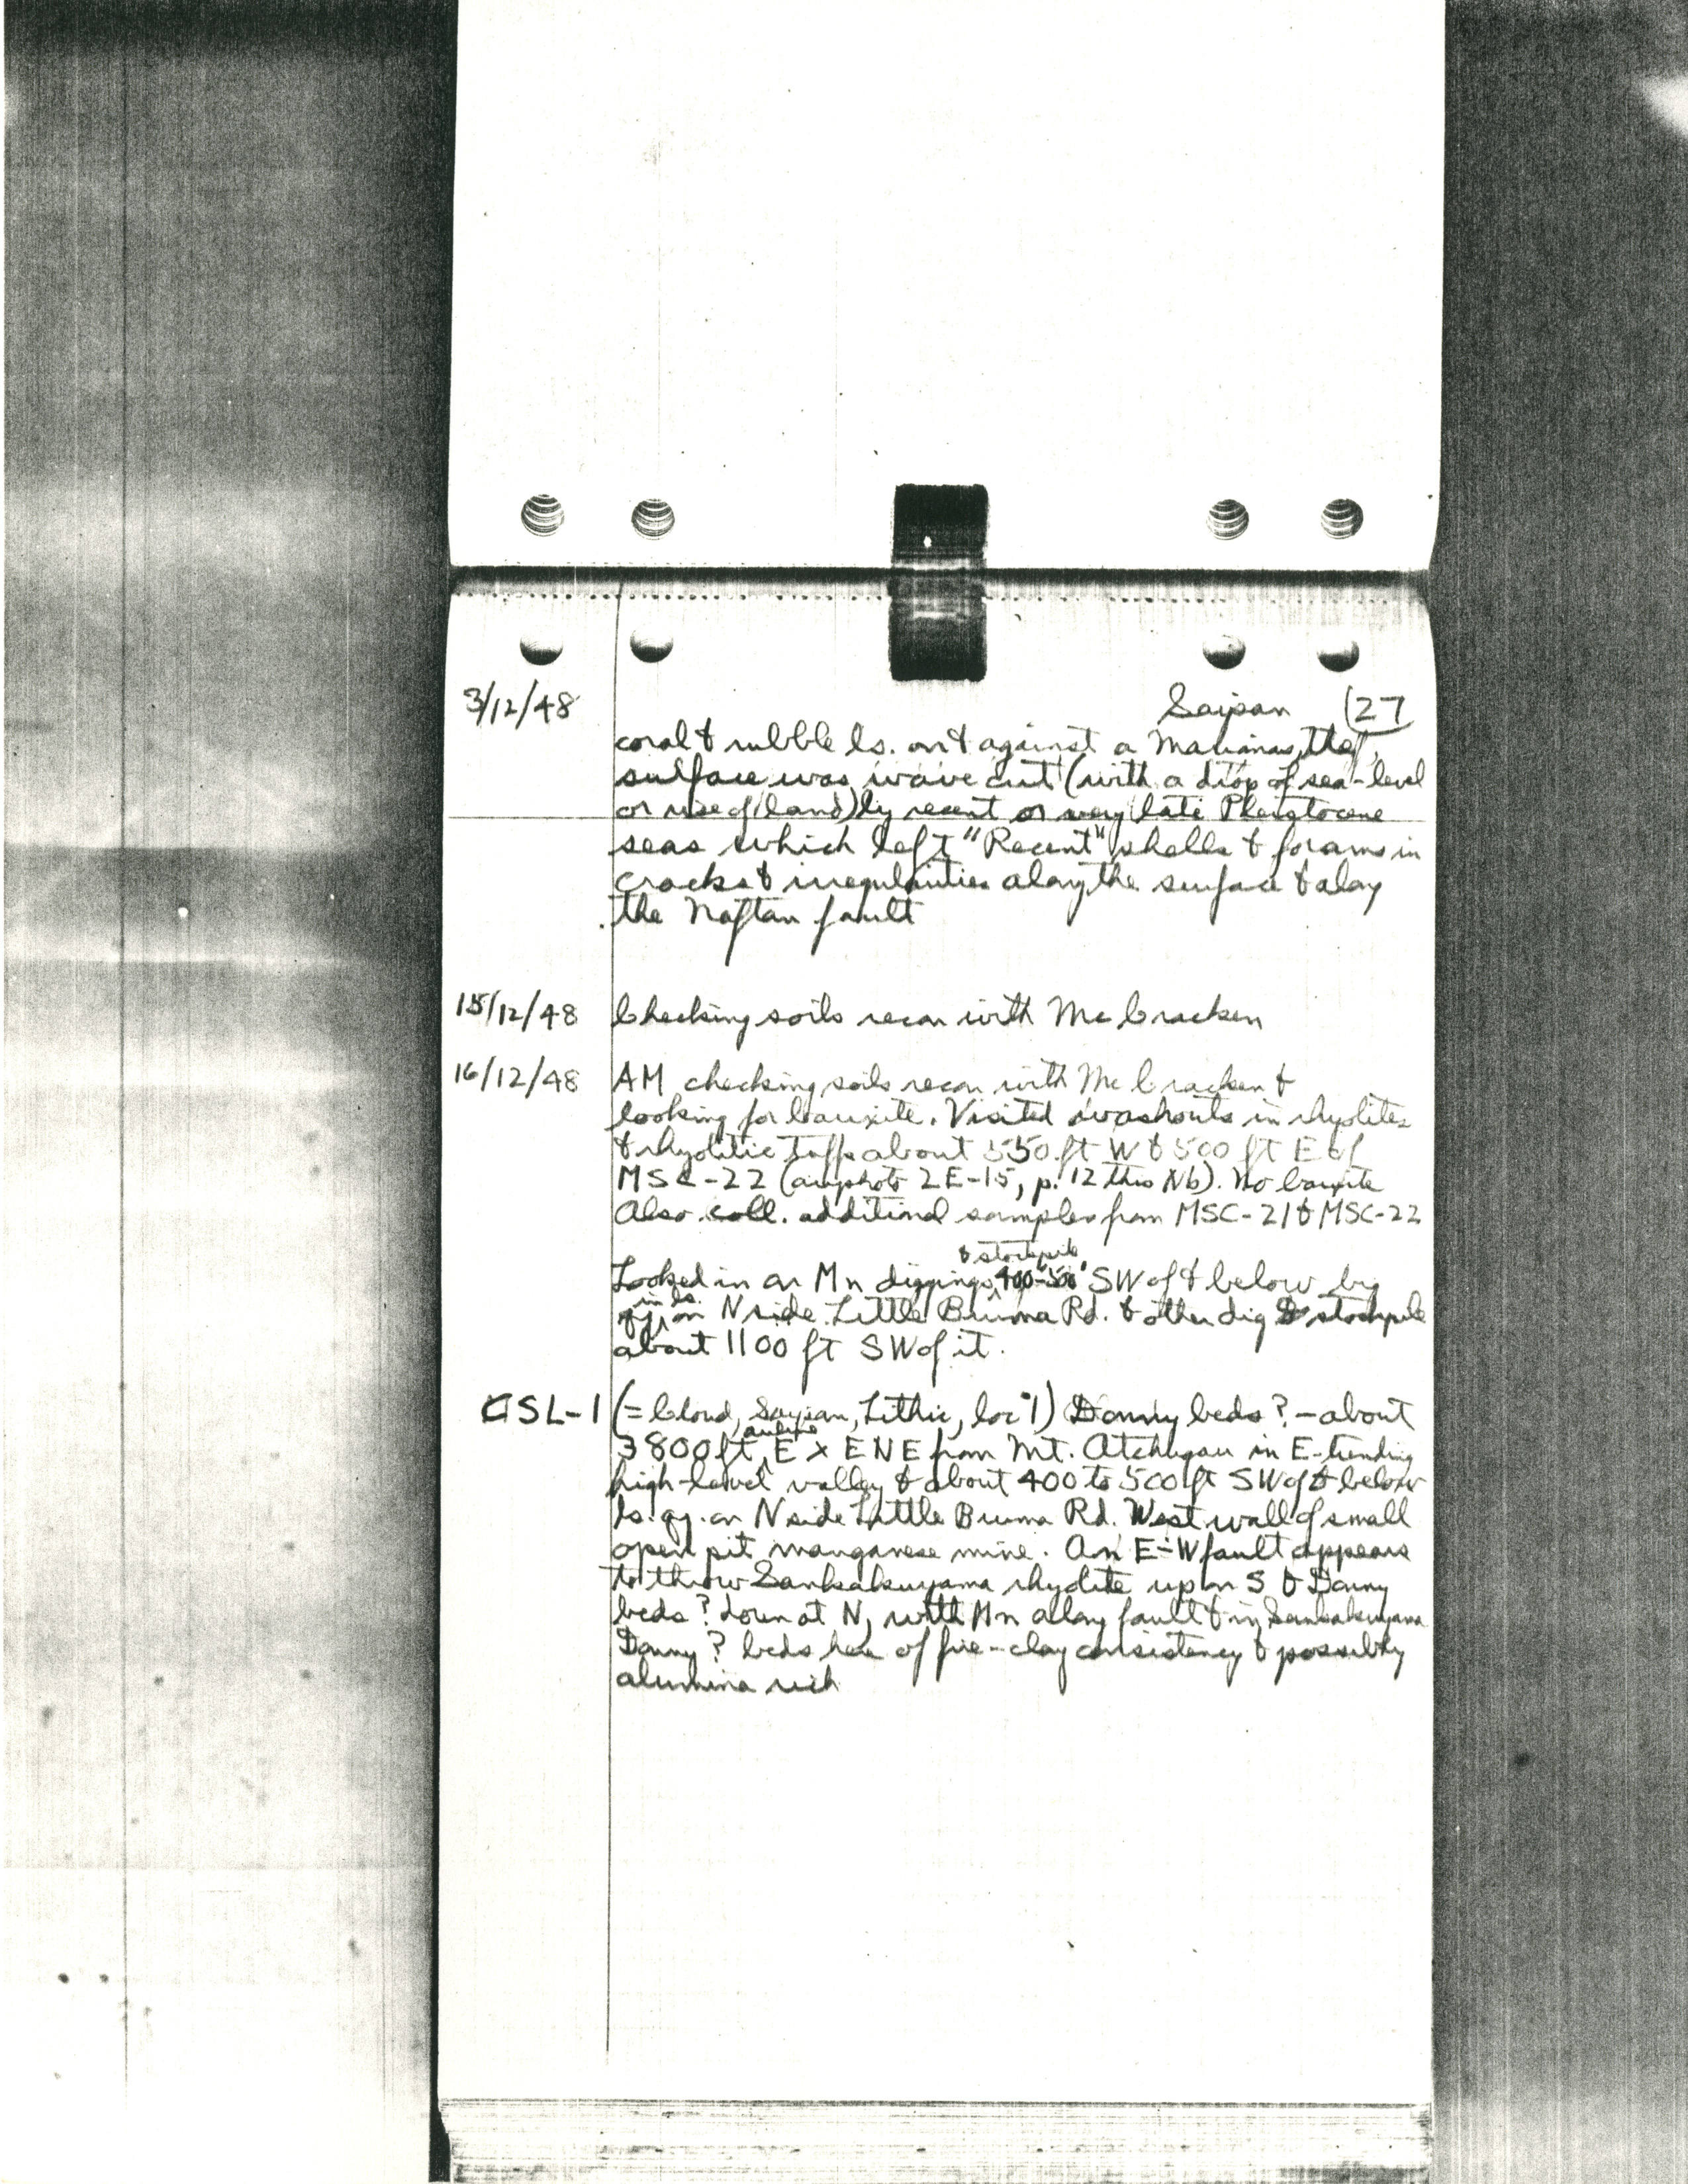 3/12/48 Saipan (27
coral & rubble ls. on & against a Marianas, the
surface was wave cut (with a drop of sea-level
or rise of land) by recent or very late Pleistocene
seas which left "Recent" shells & forams in
cracks & irregularities along the surface & along
the Naftan fault
15/12/48 Checking soils recon with McCracken
16/12/48 AM checking soils recon with McCracken &
looking for bauxite. Visited washouts in rhyolites
& rhyolitic tuffs about 550 ft W & 500 ft E of
MSC-22 (airphoto 2E-15, p. 12 this Nb). No bauxite
Also coll. additional samples from MSC-21 & MSC-22
& stockpile
Looked in on Mn diggings 400-500' SW of & below big
in ls.
qy. on N side Little Burma Rd. & other dig & stockpile
about 1100 ft SW of it.
CSL-1 (= Cloud, Saipan, Lithic, loc 1) Donny beds? - about
airline
3800 ft E x ENE from Mt. Atchugau in E-trending
high-level valley & about 400 to 500 ft SW of & below
ls. qy. on N side Little Burma Rd. West wall of small
open pit manganese mine. An E-W fault appears
to throw Sankakuyama rhyolite up on S & Donny
beds? down at N, with Mn along fault & in Sankakuyama
Donny? beds here of fire-clay consistency & possibly
alumina rich